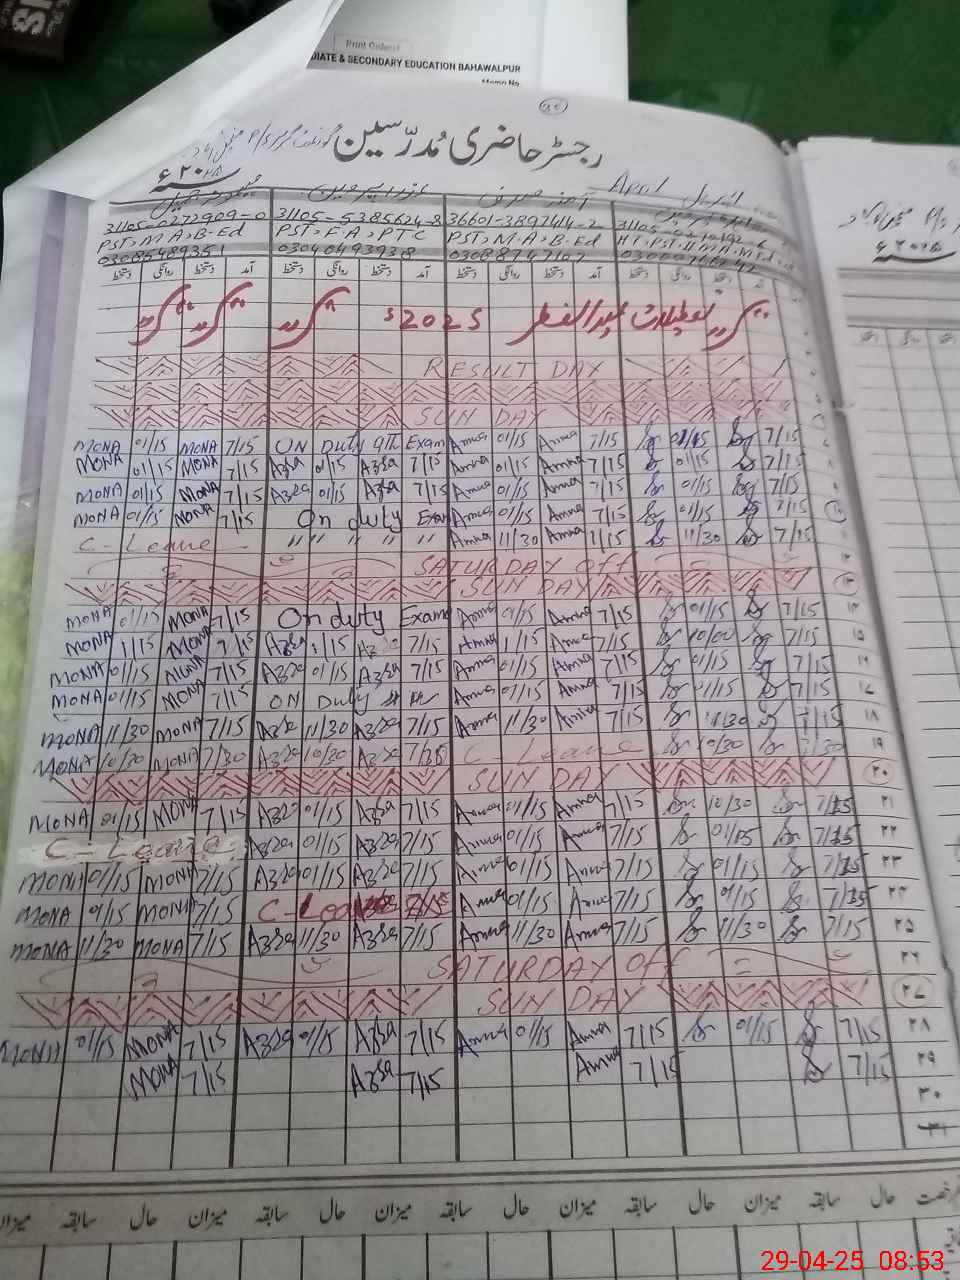 Print Order
DIATE & SECONDARY EDUCATION BAHAWALPUR
Memo No
رجسٹر حاضری مُدرّسین
April اپریل
۲۰۲۵ء
۲۰۲۵ء
31105-0272909-0 31105-5385624-8 36601-3897414-2
PST, M.A, B.Ed PST, F.A, PTC PST, M.A, B.Ed
03086489351 03040493938 03088747107
دستخط روانگی دستخط آمد دستخط روانگی دستخط آمد دستخط روانگی دستخط آمد دستخط روانگی دستخط
تعطیلات عیدالفطر 2025ء
RESULT DAY
SUN DAY
MONA 01/15 MONA 7/15 ON Duty 9th Exam Amna 01/15 Amna 7/15 01/15 7/15
MONA 01/15 MONA 7/15 Azra 01/15 Azra 7/15 Amna 01/15 Amna 7/15 01/15 7/15 ۸
MONA 01/15 MONA 7/15 Azra 01/15 Azra 7/15 Amna 01/15 Amna 7/15 01/15 7/15 ۹
MONA 01/15 MONA 7/15 On duty Exam Amna 01/15 Amna 7/15 01/15 7/15 ۱۰
C-Leave " " " " " Amna 11/30 Amna 7/15 11/30 7/15
SATURDAY off ۱۲
SUN DAY ۱۳
MONA 01/15 MONA 7/15 On duty Exam Amna 01/15 Amna 7/15 01/15 7/15 ۱۴
MONA 1/15 MONA 7/15 Azra 1/15 7/15 Amna 1/15 Amna 7/15 10/00 7/15 ۱۵
MONA 01/15 MONA 7/15 Azra 01/15 Azra 7/15 Amna 01/15 Amna 7/15 01/15 7/15 ۱۶
MONA 01/15 MONA 7/15 ON Duty Amna 01/15 Amna 7/15 01/15 7/15 ۱۷
MONA 11/30 MONA 7/15 Azra 11/30 Azra 7/15 Amna 11/30 Amna 7/15 11/30 7/15 ۱۸
MONA 10/30 MONA 7/30 Azra 10/30 Azra C-Leave 10/30 7/30 ۱۹
SUN DAY ۲۰
MONA 01/15 MONA 7/15 Azra 01/15 Azra 7/15 Amna 01/15 Amna 7/15 10/30 7/15 ۲۱
C-Leave Azra 01/15 Azra 7/15 Amna 01/15 Amna 7/15 01/15 7/15 ۲۲
MONA 01/15 MONA 7/15 Azra 01/15 Azra 7/15 Amna 01/15 Amna 7/15 01/15 7/15 ۲۳
MONA 01/15 MONA 7/15 C-Leave 7/15 Amna 01/15 Amna 7/15 01/15 7/15 ۲۴
MONA 11/30 MONA 7/15 Azra 11/30 Azra 7/15 Amna 11/30 Amna 7/15 11/30 7/15 ۲۵
SATURDAY off ۲۶
SUN DAY ۲۷
MONA 01/15 MONA 7/15 Azra 01/15 Azra 7/15 Amna 01/15 Amna 7/15 01/15 7/15 ۲۸
MONA 7/15 Azra 7/15 Amna 7/15 7/15 ۲۹
۳۰
۳۱
رخصت حال سابقہ میزان حال سابقہ میزان حال سابقہ میزان حال سابقہ میزان
29-04-25 08:53